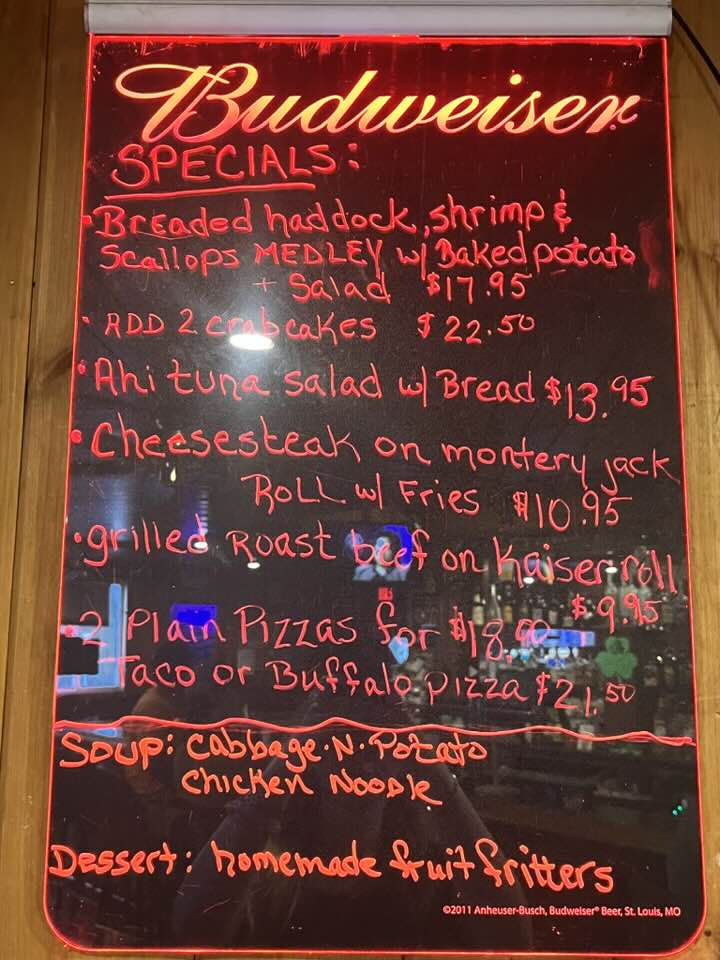 Budweiser
SPECIALS:
• Breaded haddock, shrimp &
Scallops MEDLEY w/ Baked potato
+ Salad $17.95
• ADD 2 crabcakes $22.50
• Ahi tuna salad w/ Bread $13.95
• Cheesesteak on montery jack
ROLL w/ Fries $10.95
• grilled Roast beef on Kaiser roll
$9.95
• 2 Plain Pizzas for $18.00
Taco or Buffalo pizza $21.50
Soup: Cabbage·N·Potato
Chicken Noodle
Dessert: homemade fruit fritters
©2011 Anheuser-Busch, Budweiser® Beer, St. Louis, MO